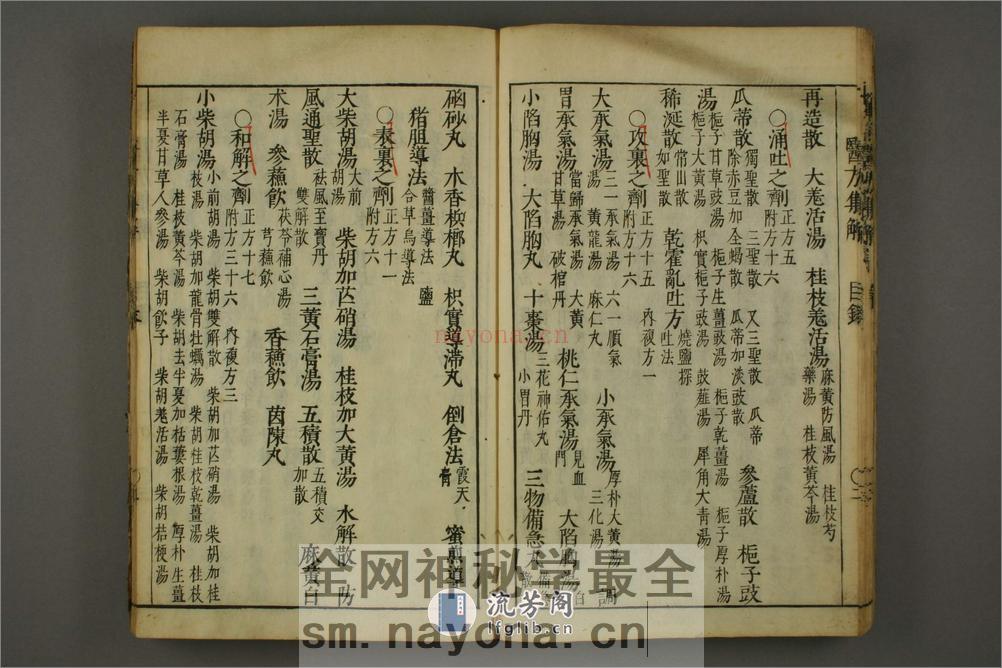 醫方集解 目錄
再造散 大羌活湯 桂枝羌活湯 麻黃防風湯 桂枝芍
藥湯 桂枝黃芩湯
○涌吐之劑 正方五
附方十六
瓜蒂散 獨聖散 三聖散 又三聖散 瓜蒂
除赤豆加全蝎散 瓜蒂加淡豉散 參蘆散 梔子豉
湯 梔子甘草豉湯 梔子生薑豉湯 梔子乾薑湯 梔子厚朴湯
梔子大黃湯 枳實梔子豉湯 豉薤湯 犀角大青湯
稀涎散 常山散
如聖散 乾霍亂吐方 燒鹽探
吐法
○攻裏之劑 正方十五 內複方一
附方十六
大承氣湯 三一承氣湯 六一順氣
湯 黃龍湯 麻仁丸 小承氣湯 厚朴大黃湯
三化湯 調
胃承氣湯 當歸承氣湯 大黃
湯 破棺丹 桃仁承氣湯 見血
門 大陷胸湯
小陷胸湯 大陷胸丸 十棗湯 三花神佑丸
小胃丹 三物備急丸 白
散
硇砂丸 木香檳榔丸 枳實導滯丸 倒倉法 霞天
膏 蜜煎導
法 豬胆導法 醬薑導法 鹽
合草烏導法
○表裏之劑 正方十一
附方六
大柴胡湯 大前
胡湯 柴胡加芒硝湯 桂枝加大黃湯 水解散 防
風通聖散 祛風至寶丹
雙解散 三黃石膏湯 五積散 五積交
加散 麻黃白
朮湯 參蘇飲 茯苓補心湯
芎蘇飲 香蘇飲 茵陳丸
○和解之劑 正方十七 內複方三
附方三十六
小柴胡湯 小前胡湯 柴胡雙解散 柴胡加芒硝湯 柴胡加桂
枝湯 柴胡加龍骨牡蠣湯 柴胡桂枝乾薑湯 柴胡桂枝
石膏湯 桂枝黃芩湯 柴胡去半夏加栝蔞根湯 厚朴生薑
半夏甘草人參湯 柴胡飲子 柴胡羌活湯 柴胡桔梗湯
nayona.cn
全网神秘学最全
sm.nayona.cn
流芳阁
lfglib.cn